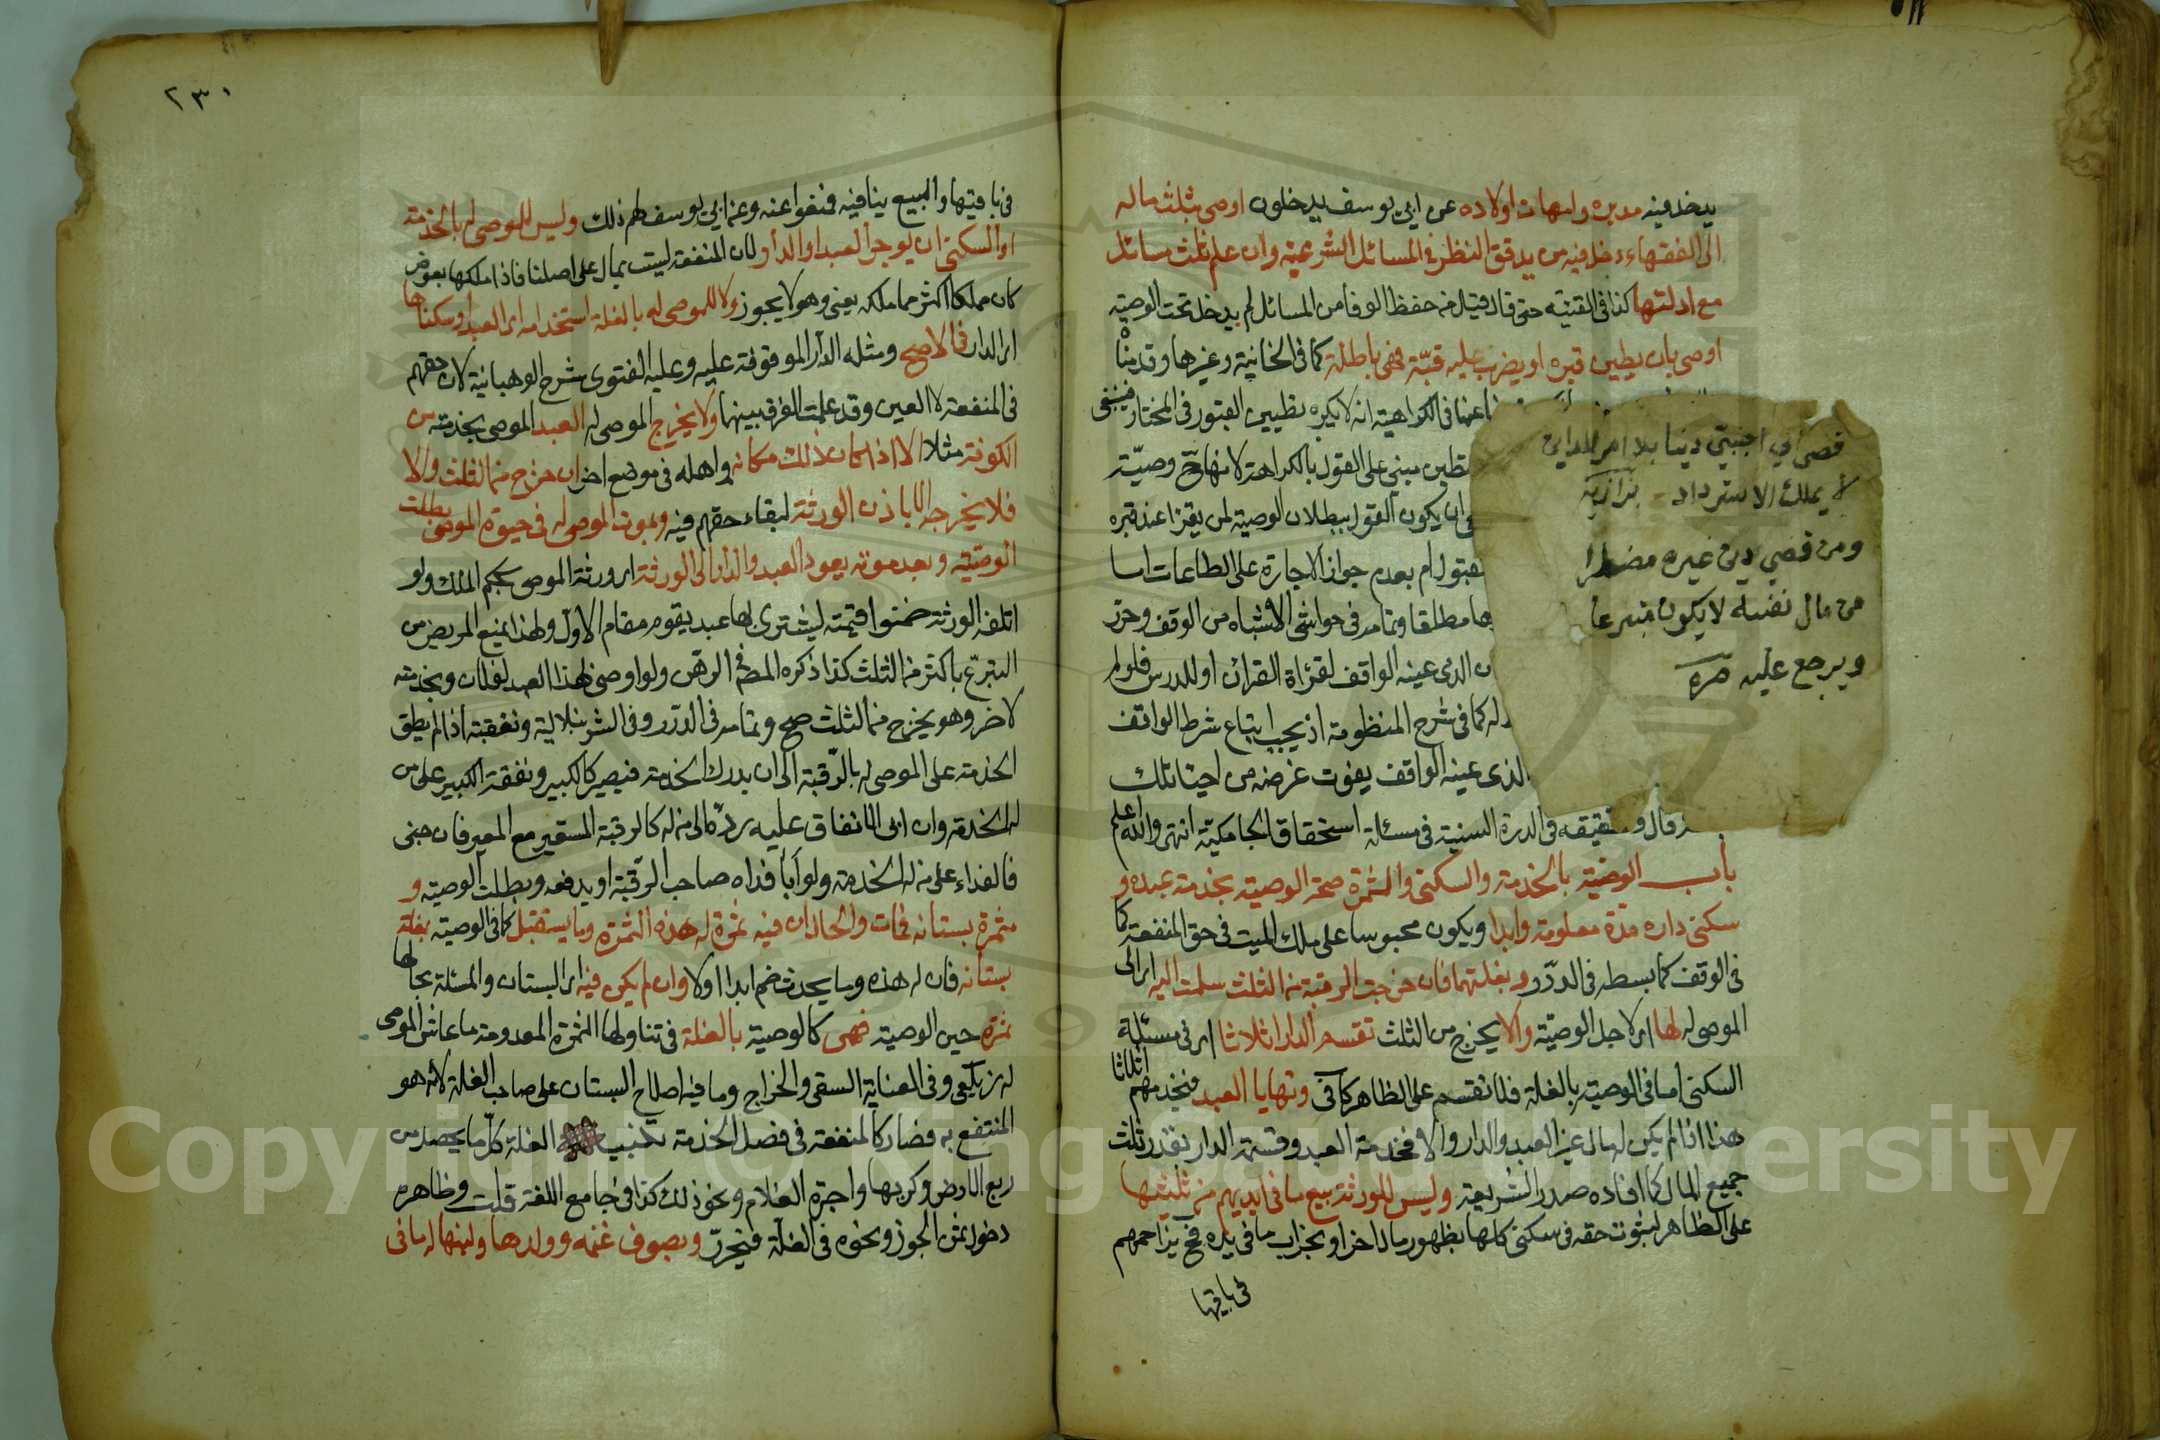 يدخل فيه مدبره وامهات اولاده عن ابي يوسف يدخلون اوصى بثلث ماله
الى الفقهاء دخل فيه من يدقق النظر في المسائل الشرعية وان علم ثلث مسائل
مع ادلتها كذا في القنية حتى قال قيل من حفظ الوفا من المسائل لم يدخل تحت الوصية
اوصى بان يطين قبره او يضرب عليه قبة فهي باطلة كما في الخانية وغيرها وقدمنا
عنها في الكراهية انه لا يكره تطيين القبور في المختار فينبغي
مبني على القول بالكراهة لانها ح وصية
ان يكون القول ببطلان الوصية لمن يقرا عند قبره
بعدم جواز الاجارة على الطاعات اما
مطلقا وتمامه في حواشي الاشباه من الوقف وحرر
الذي عينه الواقف لقراة القران او للدرس فلو لم
له كما في شرح المنظومة اذ يجب اتباع شرط الواقف
الذي عينه الواقف يفوت غرضه من احياء تلك
قال وتحقيقه في الدرة السنية في مسئلة استحقاق الجامكية انتهى والله اعلم
باب الوصية بالخدمة والسكنى والثمرة صحة الوصية بخدمة عبده و
سكنى داره مدة معلومة وابدا ويكون محبوسا على ملك الميت في حق المنفعة كما
في الوقف كما بسطه في الدرر وبغلتهما فان خرجت الرقبة من الثلث سلمت اليه اي الى
الموصى له لها اي لاجل الوصية والا يخرج من الثلث تقسم الدار اثلاثا اي في مسئلة
السكنى اما في الوصية بالغلة فلا تقسم على الظاهر كما في وتهايا العبد فيخدمهم اثلاثا
هذا اذا لم يكن له مال غير العبد والدار والا فخدمة العبد وقسمة الدار بقدر ثلث
جميع المال كما افاده صدر الشريعة وليس للورثة بيع ما في ايديهم من ثلثيها
على الظاهر لثبوت حقه في سكنى كلها بظهور مال اخر او بخراب ما في يده فح يزاحمهم
في باقيها
قضى اي اجنبي دينا بلا امر المداين
لا يملك الاسترداد بزازية
ومن قضى دين غيره مضطرا
من مال نفسه لا يكون متبرعا
ويرجع عليه مره
٢٣٠
في باقيها والبيع ينافيه فنفوا عنه وعن ابي يوسف لهم ذلك وليس للموصى له بالخدمة
او السكنى ان يوجر العبد او الدار لان المنفعة ليست بمال على اصلنا فاذا ملكها بعوض
كان مملكا اكثر مما ملكه يعني وهو لا يجوز ولا للموصى له بالغلة استخدامه اي العبد او سكناها
اي الدار في الاصح ومثله الدار الموقوفة عليه وعليه الفتوى شرح الوهبانية لان حقهم
في المنفعة لا العين وقد علمت الفرق بينهما ولا يخرج الموصى له العبد الموصى بخدمته من
الكوفة مثلا الا اذا كان ذلك مكانه واهله في موضع اخر ان خرج من الثلث والا
فلا يخرجه الا باذن الورثة لبقاء حقهم فيه وبموت الموصى له في حيوة الموصي بطلت
الوصية وبعد موته يعود العبد والدار الى الورثة اي ورثة الموصي بحكم الملك ولو
اتلفه الورثة ضمنوا قيمته ليشترى بها عبد يقوم مقام الاول ولهذا يمنع المريض من
التبرع باكثر من الثلث كذا ذكره المص في الرهن ولو اوصى لهذا العبد لفلان وبخدمته
لاخر وهو يخرج من الثلث صح وتمامه في الدرر وفي الشرنبلالية ونفقته اذا لم يطق
الخدمة على الموصى له بالرقبة الى ان يدرك الخدمة فيصير كالكبير ونفقة الكبير على من
له الخدمة وان ابى الانفاق عليه رده الى من له كالرقبة المستعير مع المعير فان جنى
فالفداء على من له الخدمة ولو ابا فداه صاحب الرقبة او يدفعه وبطلت الوصية و
بثمرة بستانه فمات والحال ان فيه ثمرة له هذه الثمرة وما يستقبل كما في الوصية بغلة
بستانه فان له هذه وما يحدث ضم ابدا اولا وان لم يكن فيه اي البستان والمسئلة بحالها
ثمرة حين الوصية فهي كالوصية بالغلة في تناولها الثمرة المعدومة ما عاش الموصى
له زيلعي وفي العناية السقي والخراج وما فيه اصلاح البستان على صاحب الغلة لانه هو
المنتفع به فصار كالمنفعة في فصل الخدمة الغلة كل ما يحصل من
ريع الارض وكريها واجرة الغلام ونحو ذلك كذا في جامع اللغة قلت وظاهره
دخول ثمن الجوز ونحوه في الغلة فيحرر وبصوف غنمه وولدها ولبنها له ما في
Copyright © King Saud University